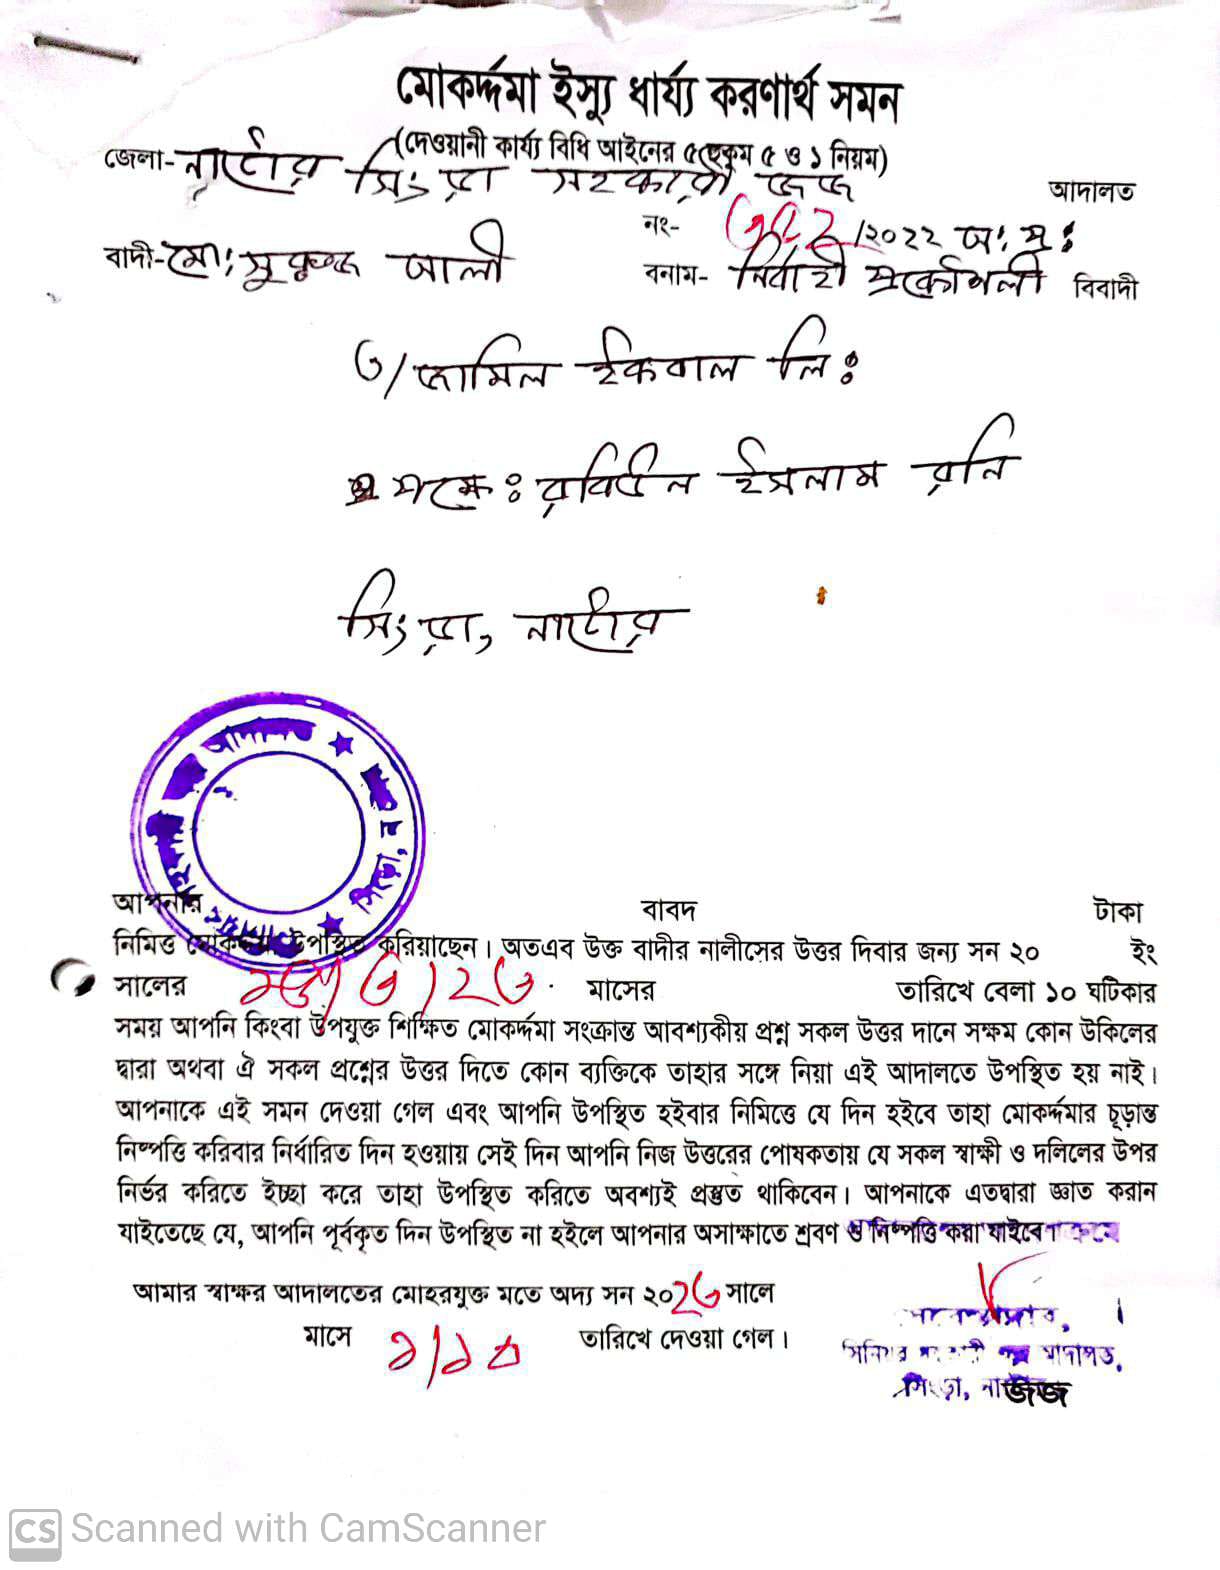 মোকর্দ্দমা ইস্যু ধার্য্য করণার্থ সমন
(দেওয়ানী কার্য্য বিধি আইনের ৫ হুকুম ৫ ও ১ নিয়ম)
জেলা- নাটোর সিংড়া সহকারী জজ আদালত
নং- /২০২২ অ: প্র:
বাদী- মো: আলী বনাম- নির্বাহী প্রকৌশলী বিবাদী
৩/ জামিল ইকবাল লি:
পক্ষে: রবিউল ইসলাম রনি
সিংড়া, নাটোর
আদালত ★ সিংড়া, ★
আপনার বাবদ টাকা
নিমিত্ত মোকর্দ্দমা উপস্থিত করিয়াছেন। অতএব উক্ত বাদীর নালীসের উত্তর দিবার জন্য সন ২০ ইং
সালের /৩/২৩. মাসের তারিখে বেলা ১০ ঘটিকার
সময় আপনি কিংবা উপযুক্ত শিক্ষিত মোকর্দ্দমা সংক্রান্ত আবশ্যকীয় প্রশ্ন সকল উত্তর দানে সক্ষম কোন উকিলের
দ্বারা অথবা ঐ সকল প্রশ্নের উত্তর দিতে কোন ব্যক্তিকে তাহার সঙ্গে নিয়া এই আদালতে উপস্থিত হয় নাই।
আপনাকে এই সমন দেওয়া গেল এবং আপনি উপস্থিত হইবার নিমিত্তে যে দিন হইবে তাহা মোকর্দ্দমার চূড়ান্ত
নিষ্পত্তি করিবার নির্ধারিত দিন হওয়ায় সেই দিন আপনি নিজ উত্তরের পোষকতায় যে সকল স্বাক্ষী ও দলিলের উপর
নির্ভর করিতে ইচ্ছা করে তাহা উপস্থিত করিতে অবশ্যই প্রস্তুত থাকিবেন। আপনাকে এতদ্বারা জ্ঞাত করান
যাইতেছে যে, আপনি পূর্বকৃত দিন উপস্থিত না হইলে আপনার অসাক্ষাতে শ্রবণ ও নিষ্পত্তি করা যাইবে।
আমার স্বাক্ষর আদালতের মোহরযুক্ত মতে অদ্য সন ২০২৩ সালে
মাসে তারিখে দেওয়া গেল।
সিনিয়র সহকারী জজ আদালত,
সিংড়া, নাটোর
জজ
CS Scanned with CamScanner